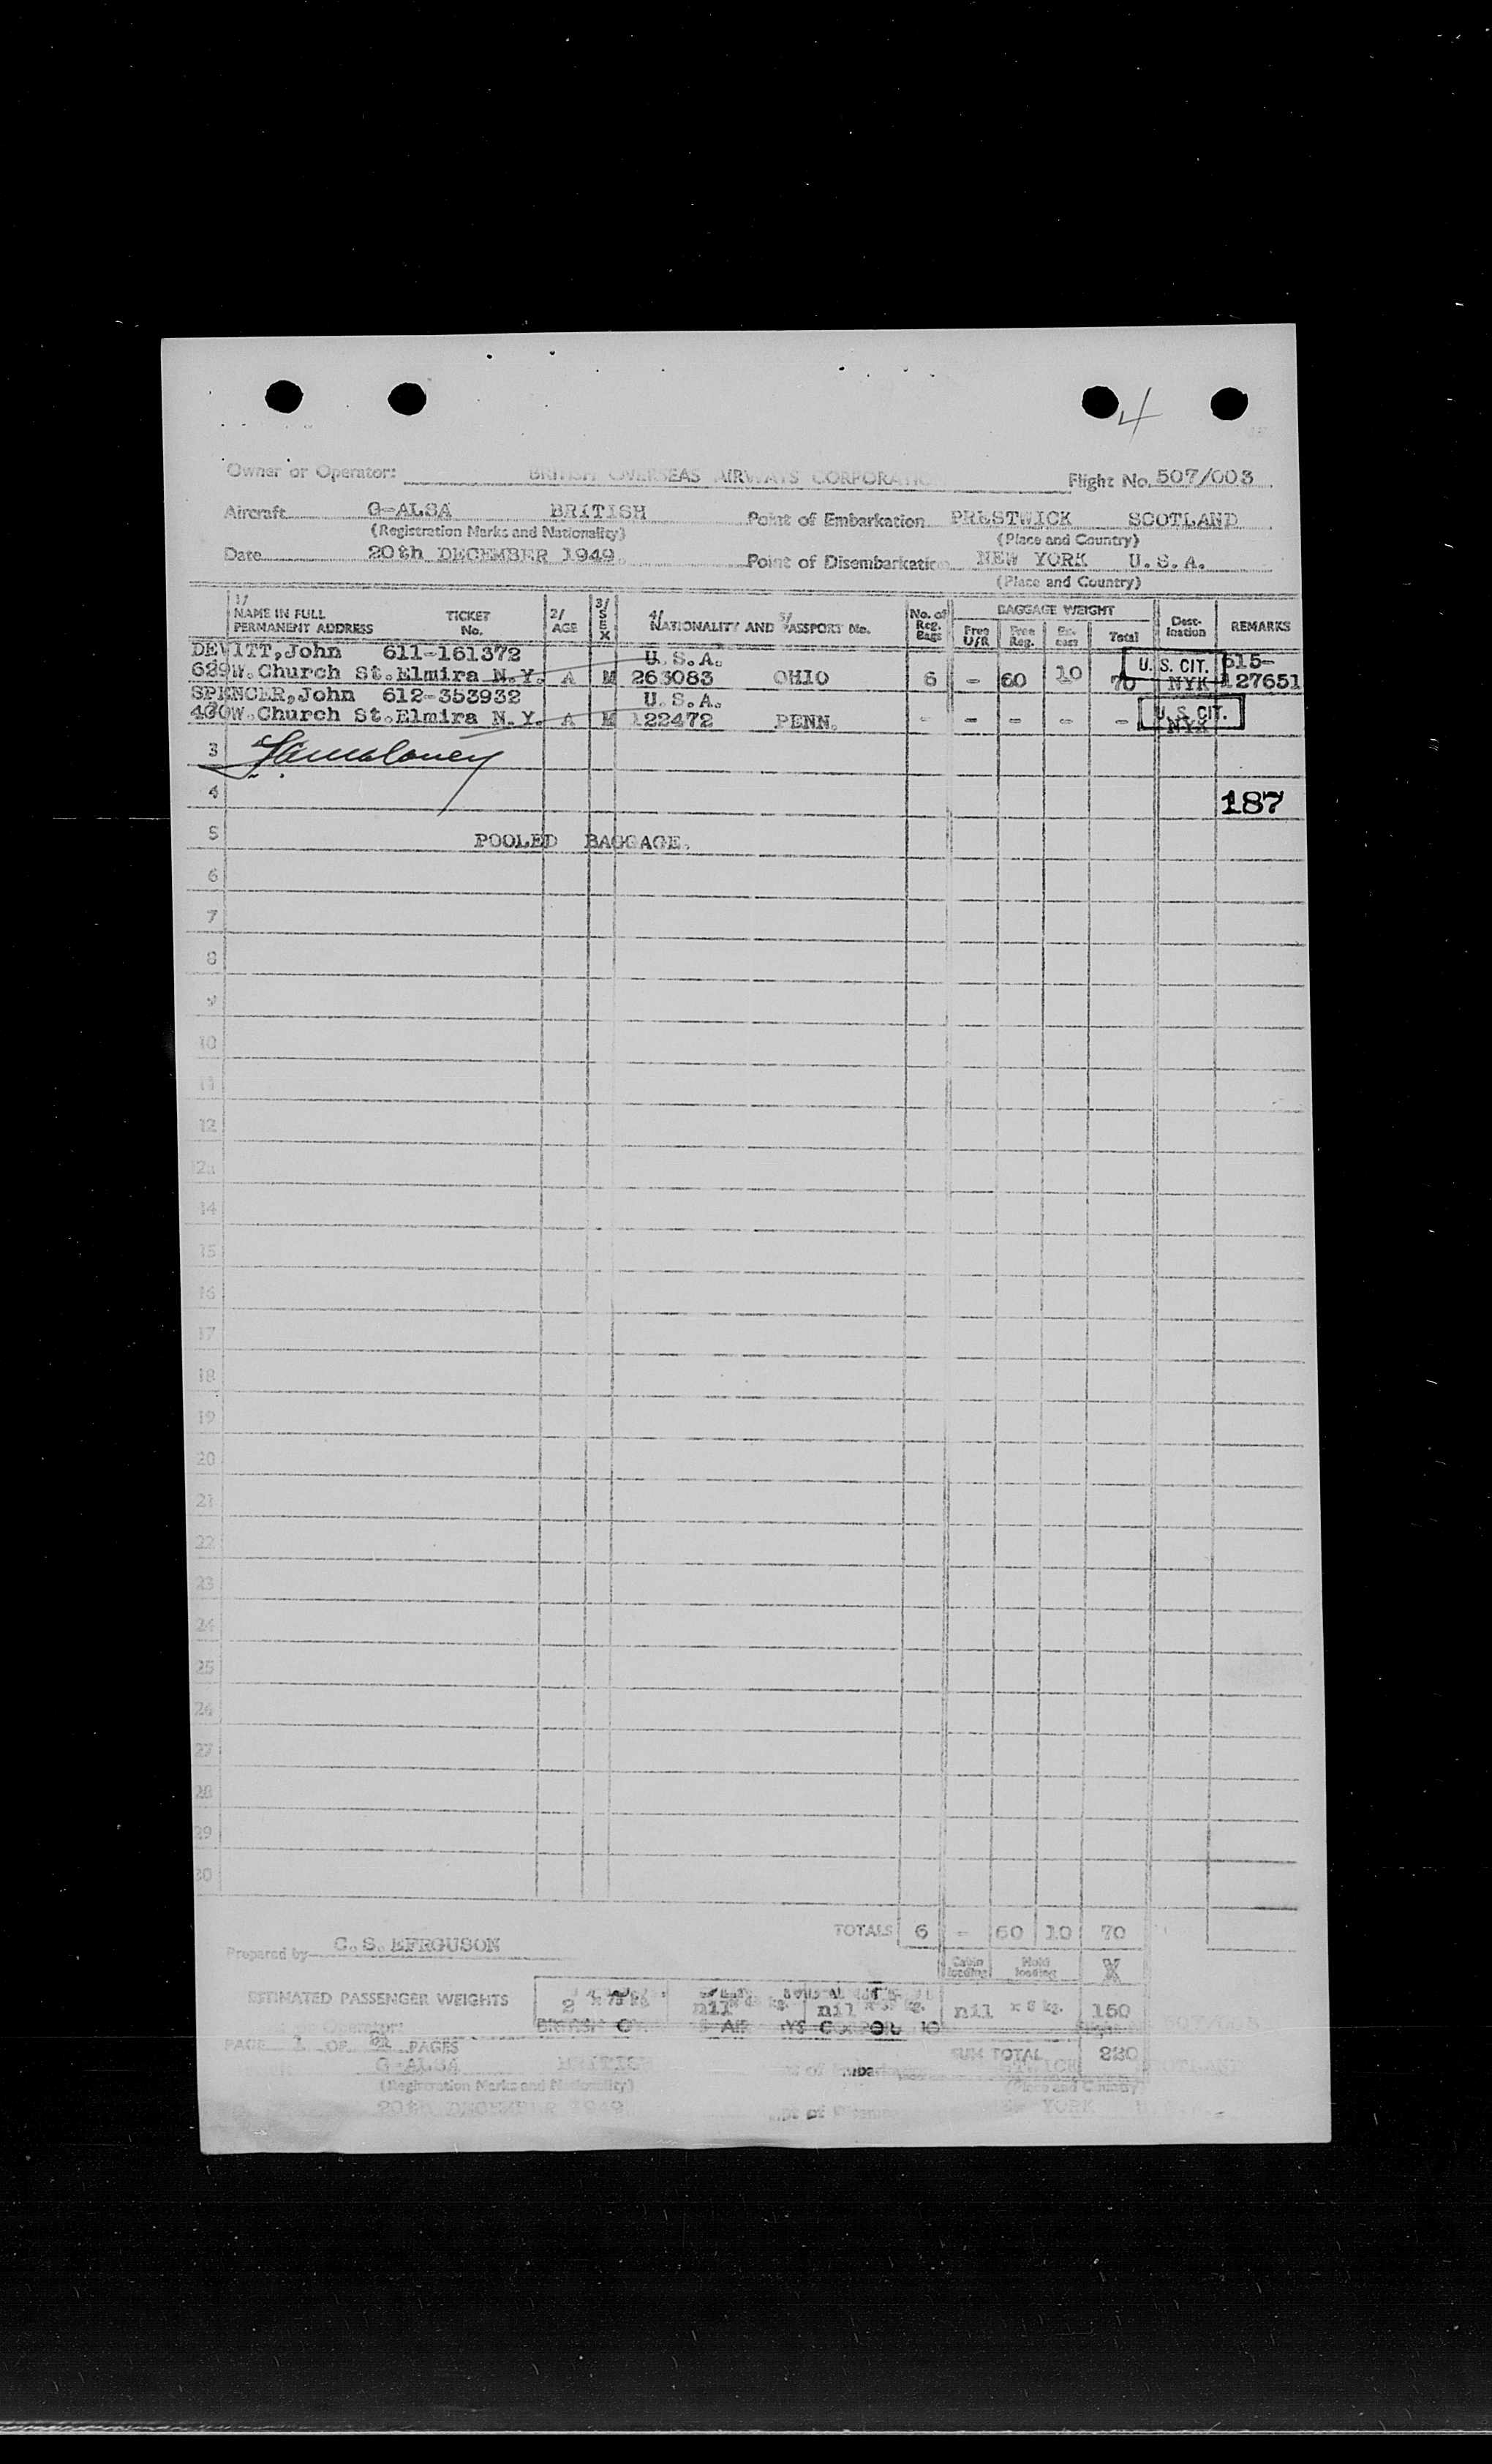 4
Owner or Operator: BRITISH OVERSEAS AIRWAYS CORPORATION Flight No. 507/003
Aircraft G-ALSA BRITISH Point of Embarkation PRESTWICK SCOTLAND
(Registration Marks and Nationality) (Place and Country)
Date 20th DECEMBER 1949. Point of Disembarkation NEW YORK U.S.A.
(Place and Country)
1/ NAME IN FULL PERMANENT ADDRESS TICKET No. 2/ AGE 3/ SEX 4/ NATIONALITY AND 5/ PASSPORT No. No. of Reg. Bags BAGGAGE WEIGHT Free U/R Free Reg. Ex-cess Total Dest-ination REMARKS
DEVITT, John 611-161372 U.S.A. U. S. CIT. 615-
689W. Church St. Elmira N.Y. A M 263083 OHIO 6 - 60 10 70 NYK 127651
SPENCER, John 612-353932 U.S.A. U. S. CIT.
400W. Church St. Elmira N.Y. A M 122472 PENN. - - - - - NYK
3
4 187
5 POOLED BAGGAGE.
6
7
8
9
10
11
12
12a
14
15
16
17
18
19
20
21
22
23
24
25
26
27
28
29
30
TOTALS 6 - 60 10 70
Prepared by C. S. EFRGUSON
Cabin loading Hold loading X
ESTIMATED PASSENGER WEIGHTS 2 x 75 kg. nil kg. nil kg. nil x 8 kg. 150
PAGE 1 OF PAGES
SUM TOTAL 220
G-ALSA BRITISH
(Registration Marks and Nationality) (Place and Country)
20th DECEMBER 1949 YORK